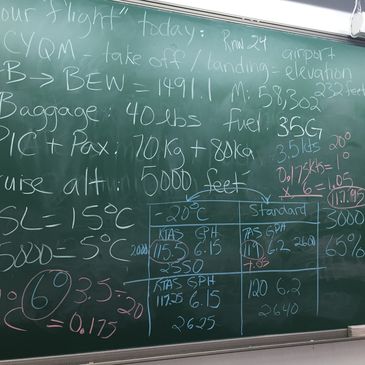 our "flight" today: Rnw 24
CYQM - take off / landing - airport elevation 232 feet
B → BEW = 1491.1 M: 58,302
Baggage: 40 lbs fuel: 35G
PIC + Pax: 70kg + 80kg
3.5kts 20°
0.175kts = 1°
x 6 = 1.05
117.95
uise alt: 5000 feet
-20°C Standard
SL = 15°C
KTAS GPH TAS GPH
2000 115.5 6.15 119 6.2 2600
2550 -1.05
3000
65%
5000 = 5°C
KTAS GPH
117.25 6.15 120 6.2
2625 2640
6° 3.5 ÷ 20
C = 0.175